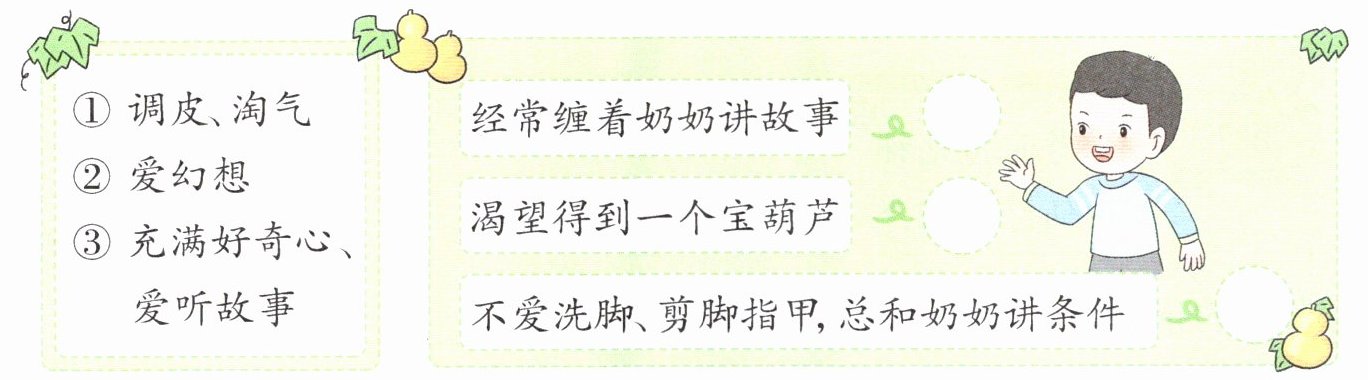 ① 调皮、淘气
② 爱幻想
③ 充满好奇心、
爱听故事
经常缠着奶奶讲故事
渴望得到一个宝葫芦
不爱洗脚、剪脚指甲,总和奶奶讲条件